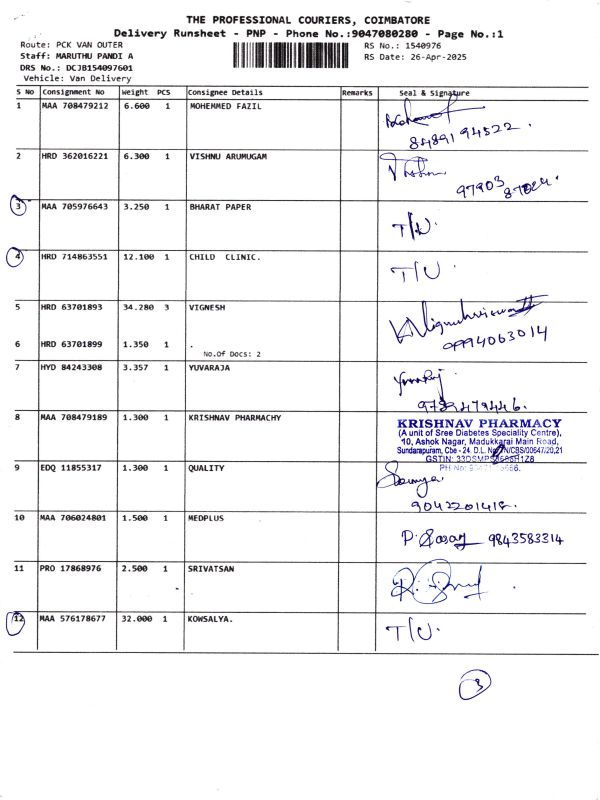 THE PROFESSIONAL COURIERS, COIMBATORE
Delivery Runsheet - PNP - Phone No.:9047080280 - Page No.:1
Route: PCK VAN OUTER
RS No.: 1540976
Staff: MARUTHU PANDI A
RS Date: 26-Apr-2025
DRS No.: DCJB154097601
Vehicle: Van Delivery
S No Consignment No Weight PCS Consignee Details Remarks Seal & Signature
1 MAA 708479212 6.600 1 MOHEMMED FAZIL
8489194522.
2 HRD 362016221 6.300 1 VISHNU ARUMUGAM
97903 87024.
3 MAA 705976643 3.250 1 BHARAT PAPER T/U.
4 HRD 714863551 12.100 1 CHILD CLINIC. T/U.
5 HRD 63701893 34.280 3 VIGNESH
09994063014
6 HRD 63701899 1.350 1 .
No.Of Docs: 2
7 HYD 84243308 3.357 1 YUVARAJA
Yuvaraj
9789479446.
8 MAA 708479189 1.300 1 KRISHNAV PHARMACHY
KRISHNAV PHARMACY
(A unit of Sree Diabetes Speciality Centre),
10, Ashok Nagar, Madukkarai Main Road,
Sundarapuram, Cbe - 24. D.L. No. /CBS/00647/20,21
GSTIN:
PH No:
9 EDQ 11855317 1.300 1 QUALITY
Sowmya
9042201418.
10 MAA 706024801 1.500 1 MEDPLUS P. 9843583314
11 PRO 17868976 2.500 1 SRIVATSAN
12 MAA 576178677 32.000 1 KOWSALYA. T/U.
3